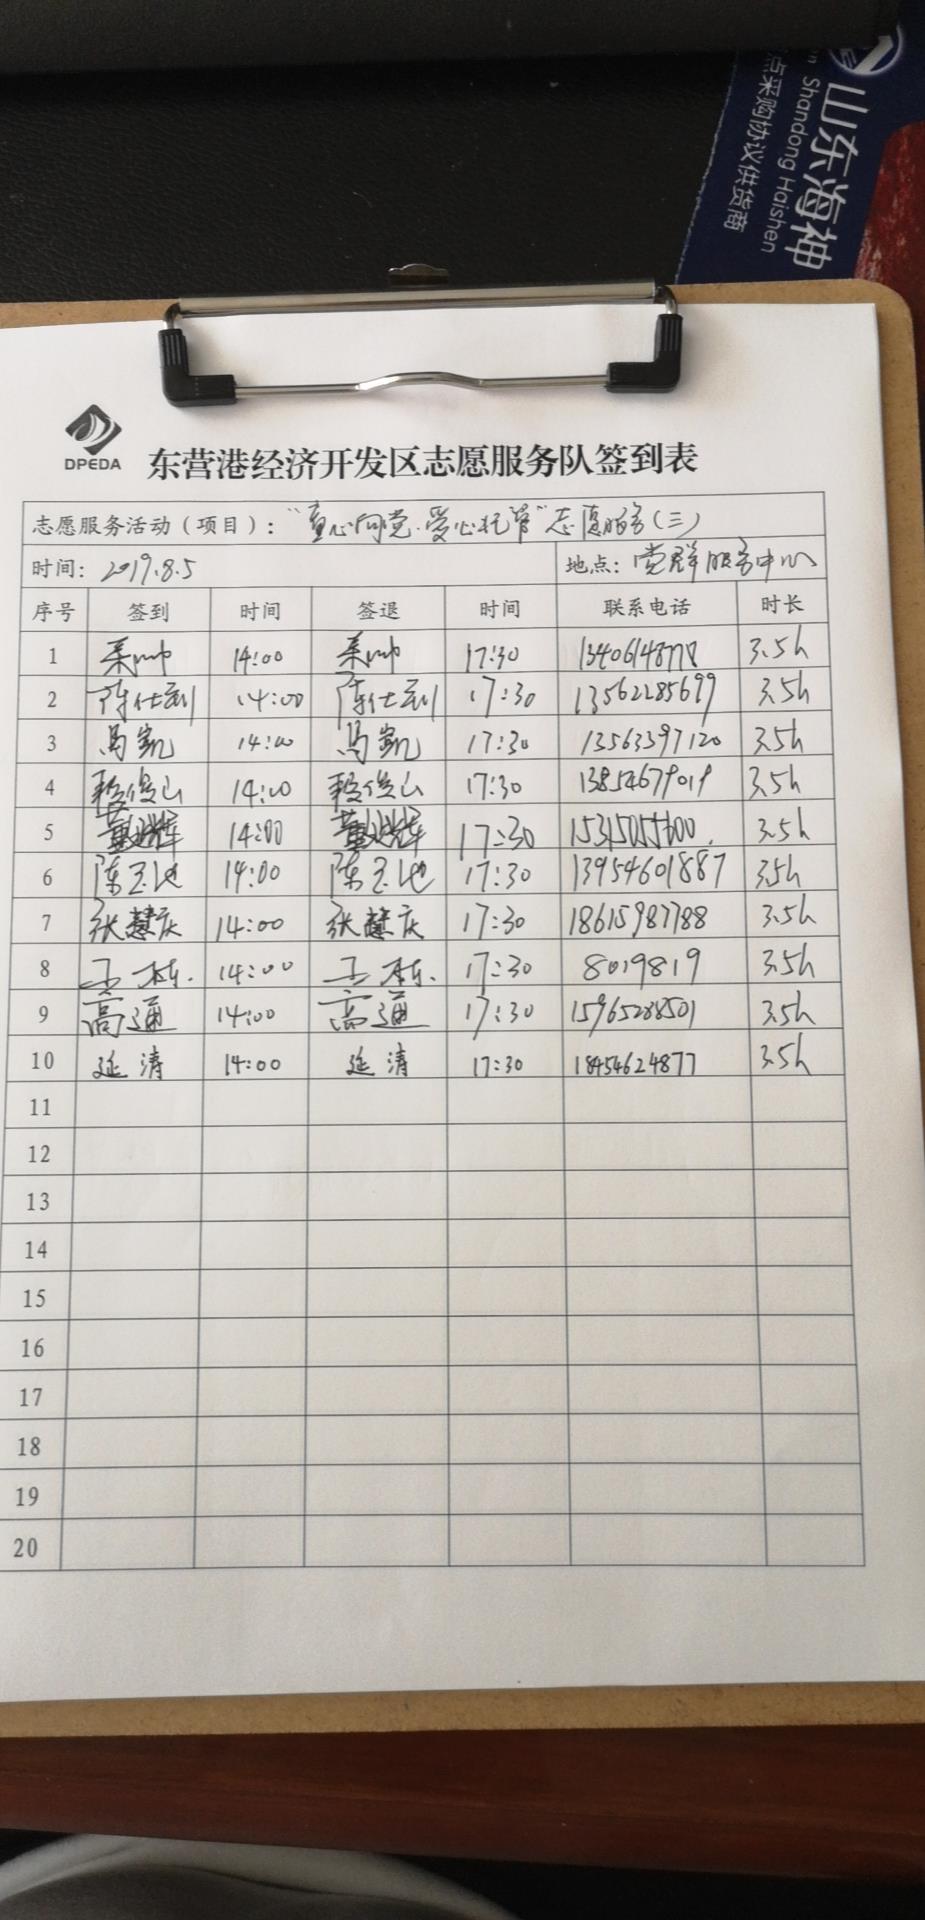 山东海神
Shandong Haishen
点采购协议供货商
DPEDA
东营港经济开发区志愿服务队签到表
志愿服务活动（项目）：“童心向党·爱心托管”志愿服务（三）
时间：2019.8.5 地点：党群服务中心
序号 签到 时间 签退 时间 联系电话 时长
1 14:00 17:30 3.5h
2 陈仕利 14:00 陈仕利 17:30 13562285699 3.5h
3 马凯 14:00 马凯 17:30 13563397120 3.5h
4 程俊山 14:00 程俊山 17:30 13854679019 3.5h
5 14:00 17:30 3.5h
6 陈玉池 14:00 陈玉池 17:30 13954601887 3.5h
7 张慧庆 14:00 张慧庆 17:30 18615987788 3.5h
8 王栋 14:00 王栋 17:30 8019819 3.5h
9 高通 14:00 高通 17:30 15965288501 3.5h
10 延涛 14:00 延涛 17:30 18454624877 3.5h
11
12
13
14
15
16
17
18
19
20